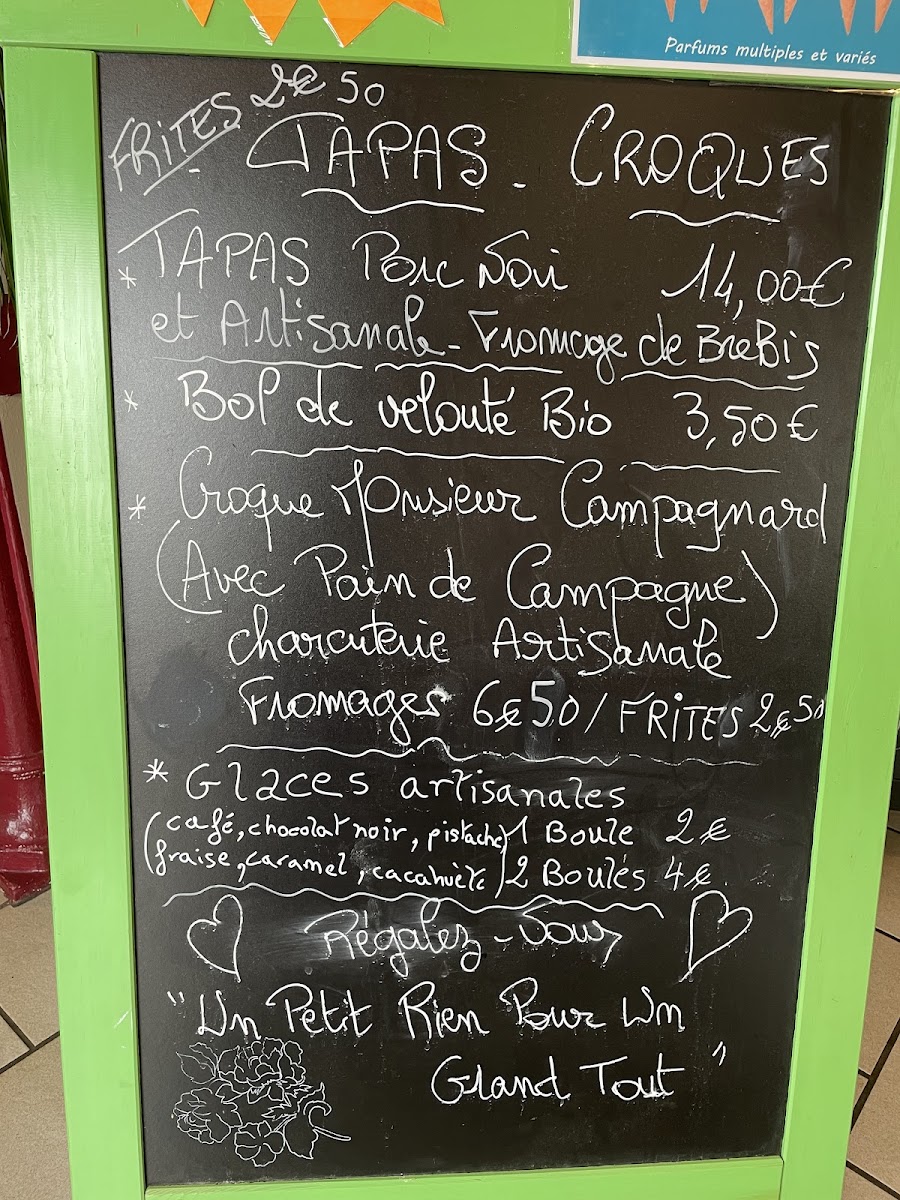 Parfums multiples et variés
FRITES 2€50
TAPAS - CROQUES
* TAPAS Porc Noir 14,00€
et Artisanale - Fromage de BreBis
* Bol de velouté Bio 3,50€
* Croque Monsieur Campagnard
(Avec Pain de Campagne)
charcuterie Artisanale
Fromages 6€50 / FRITES 2€50
* Glaces artisanales
(café, chocolat noir, pistache 1 Boule 2€
fraise, caramel, cacahuète) 2 Boules 4€
Régalez-Vous
"Un Petit Rien Pour Un
Grand Tout"